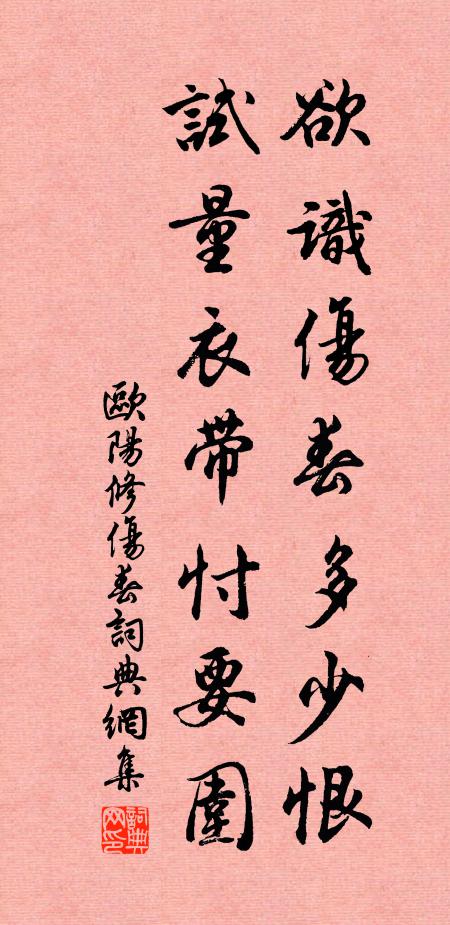 欲識傷春多少恨
試量衣帶忖要圍
歐陽修傷春詞典網集
詞典網印